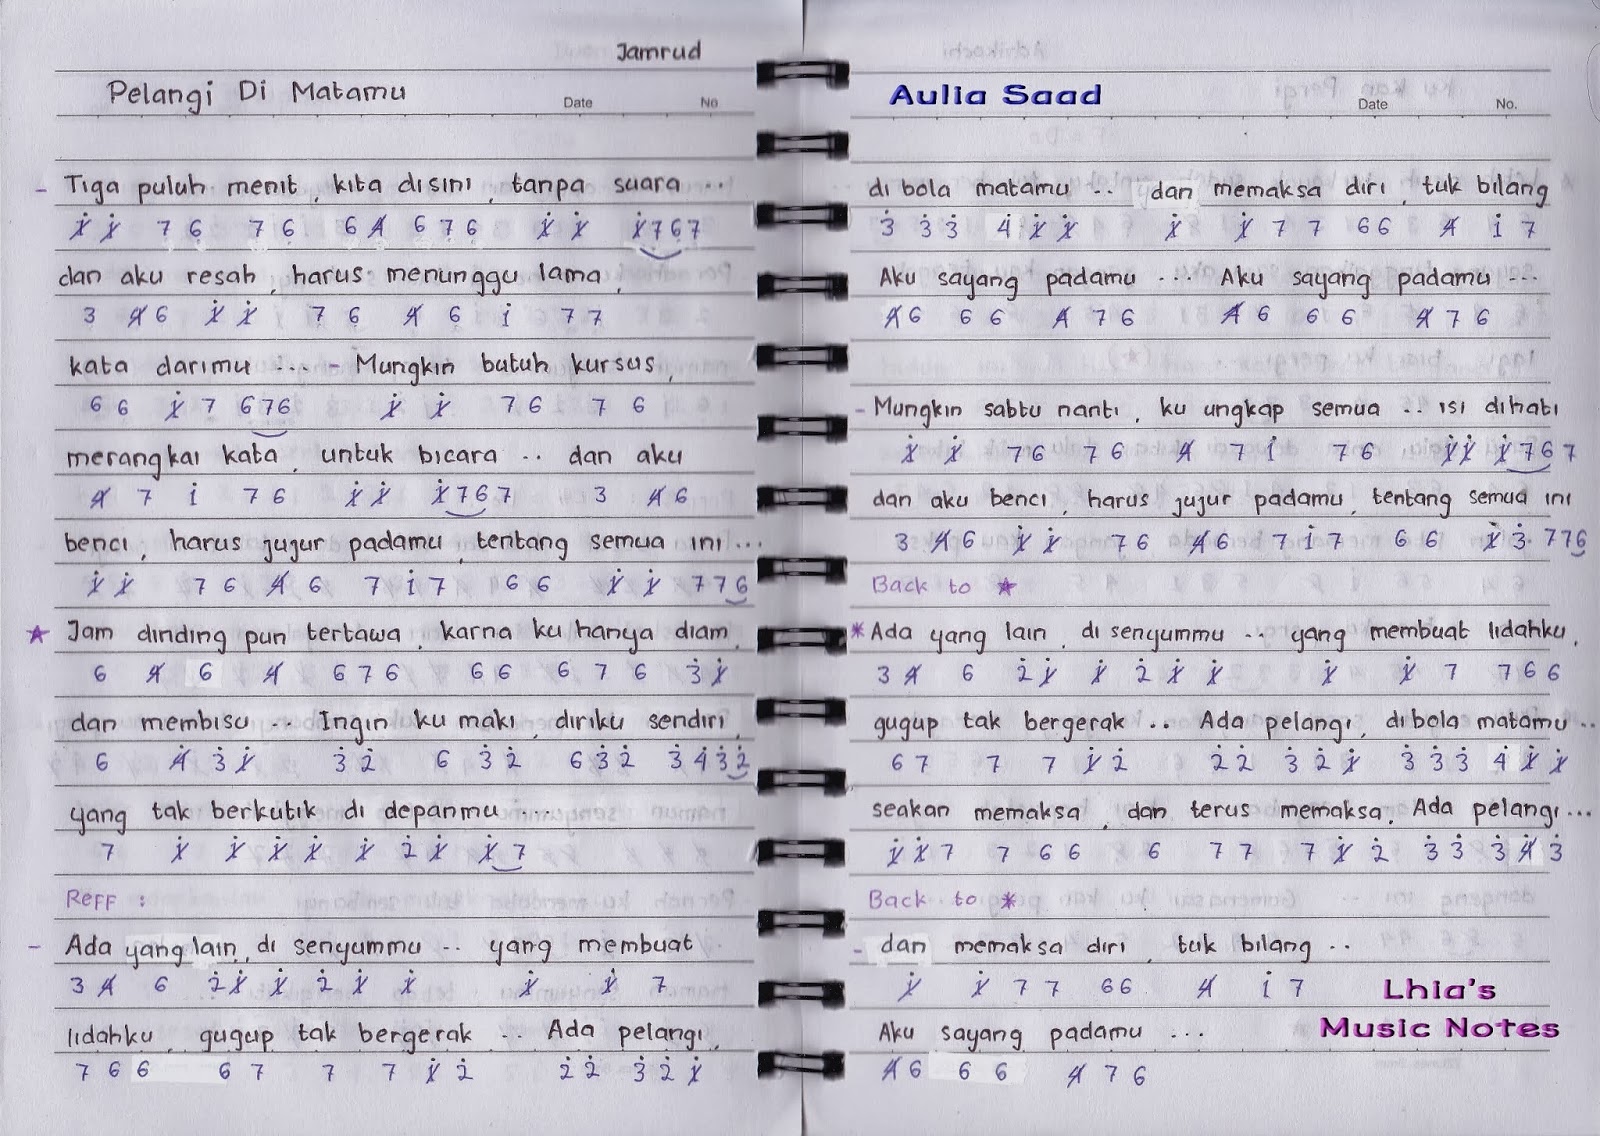 Jamrud
Pelangi Di Matamu
Date No
- Tiga puluh menit, kita disini, tanpa suara ...
1̸̇ 1̸̇ 7 6 7 6 6 4̸ 6 7 6 1̸̇ 1̸̇ 1̸̇ 7 6 7
dan aku resah, harus menunggu lama,
3 4̸ 6 1̸̇ 1̸̇ 7 6 4̸ 6 1̇ 7 7
kata darimu ... - Mungkin butuh kursus,
6 6 1̸̇ 7 6 7 6 1̸̇ 1̸̇ 7 6 7 6
merangkai kata, untuk bicara .. dan aku
4̸ 7 1̇ 7 6 1̸̇ 1̸̇ 1̸̇ 7 6 7 3 4̸ 6
benci, harus jujur padamu, tentang semua ini ...
1̸̇ 1̸̇ 7 6 4̸ 6 7 1̇ 7 6 6 1̸̇ 1̸̇ 7 7 6
★ Jam dinding pun tertawa, karna ku hanya diam,
6 4̸ 6 4̸ 6 7 6 6 6 6 7 6 3̇ 1̸̇
dan membisu .. Ingin ku maki, diriku sendiri,
6 4̸̇ 3̇ 1̸̇ 3̇ 2̇ 6 3̇ 2̇ 6 3̇ 2̇ 3̇ 4̇ 3̇ 2̇
yang tak berkutik di depanmu ....
7 1̸̇ 1̸̇ 1̸̇ 1̸̇ 1̸̇ 2̇ 1̸̇ 1̸̇ 7
Reff :
- Ada yang lain, di senyummu .. yang membuat
3 4̸ 6 2̇ 1̸̇ 1̸̇ 2̇ 1̸̇ 1̸̇ 1̸̇ 1̸̇ 7
lidahku, gugup tak bergerak .. Ada pelangi,
7 6 6 6 7 7 7 1̸̇ 2̇ 2̇ 2̇ 3̇ 2̇ 1̸̇
Aulia Saad
Date No.
di bola matamu .. dan memaksa diri, tuk bilang
3̇ 3̇ 3̇ 4̇ 1̸̇ 1̸̇ 1̸̇ 1̸̇ 7 7 6 6 4̸ 1̇ 7
Aku sayang padamu ... Aku sayang padamu ...
4̸ 6 6 6 4̸ 7 6 4̸ 6 6 6 4̸ 7 6
- Mungkin sabtu nanti, ku ungkap semua .. isi dihati
1̸̇ 1̸̇ 7 6 7 6 4̸ 7 1̇ 7 6 1̸̇ 1̸̇ 1̸̇ 7 6 7
dan aku benci, harus jujur padamu, tentang semua ini
3 4̸ 6 1̸̇ 1̸̇ 7 6 4̸ 6 7 1̇ 7 6 6 1̸̇ 3̇ 7 7 6
Back to ★
* Ada yang lain, di senyummu .. yang membuat lidahku,
3 4̸ 6 2̇ 1̸̇ 1̸̇ 2̇ 1̸̇ 1̸̇ 1̸̇ 1̸̇ 7 7 6 6
gugup tak bergerak .. Ada pelangi, di bola matamu ..
6 7 7 7 1̸̇ 2̇ 2̇ 2̇ 3̇ 2̇ 1̸̇ 3̇ 3̇ 3̇ 4̇ 1̸̇ 1̸̇
seakan memaksa, dan terus memaksa. Ada pelangi ...
1̸̇ 1̸̇ 7 7 6 6 6 7 7 7 1̸̇ 2̇ 3̇ 3̇ 3̇ 4̸̇ 3̇
Back to *
- dan memaksa diri, tuk bilang ..
1̸̇ 1̸̇ 7 7 6 6 4̸ 1̇ 7
Aku sayang padamu ...
4̸ 6 6 6 4̸ 7 6
Lhia's
Music Notes